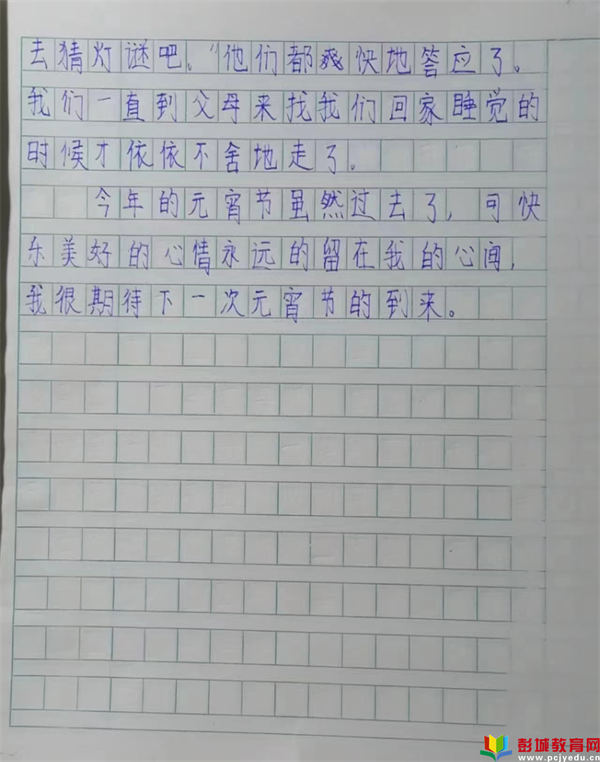 去猜灯谜吧。”他们都爽快地答应了。
我们一直到父母来找我们回家睡觉的
时候才依依不舍地走了。
今年的元宵节虽然过去了，可快
乐美好的心情永远的留在我的心间，
我很期待下一次元宵节的到来。
彭城教育网
www.pcjyedu.cn